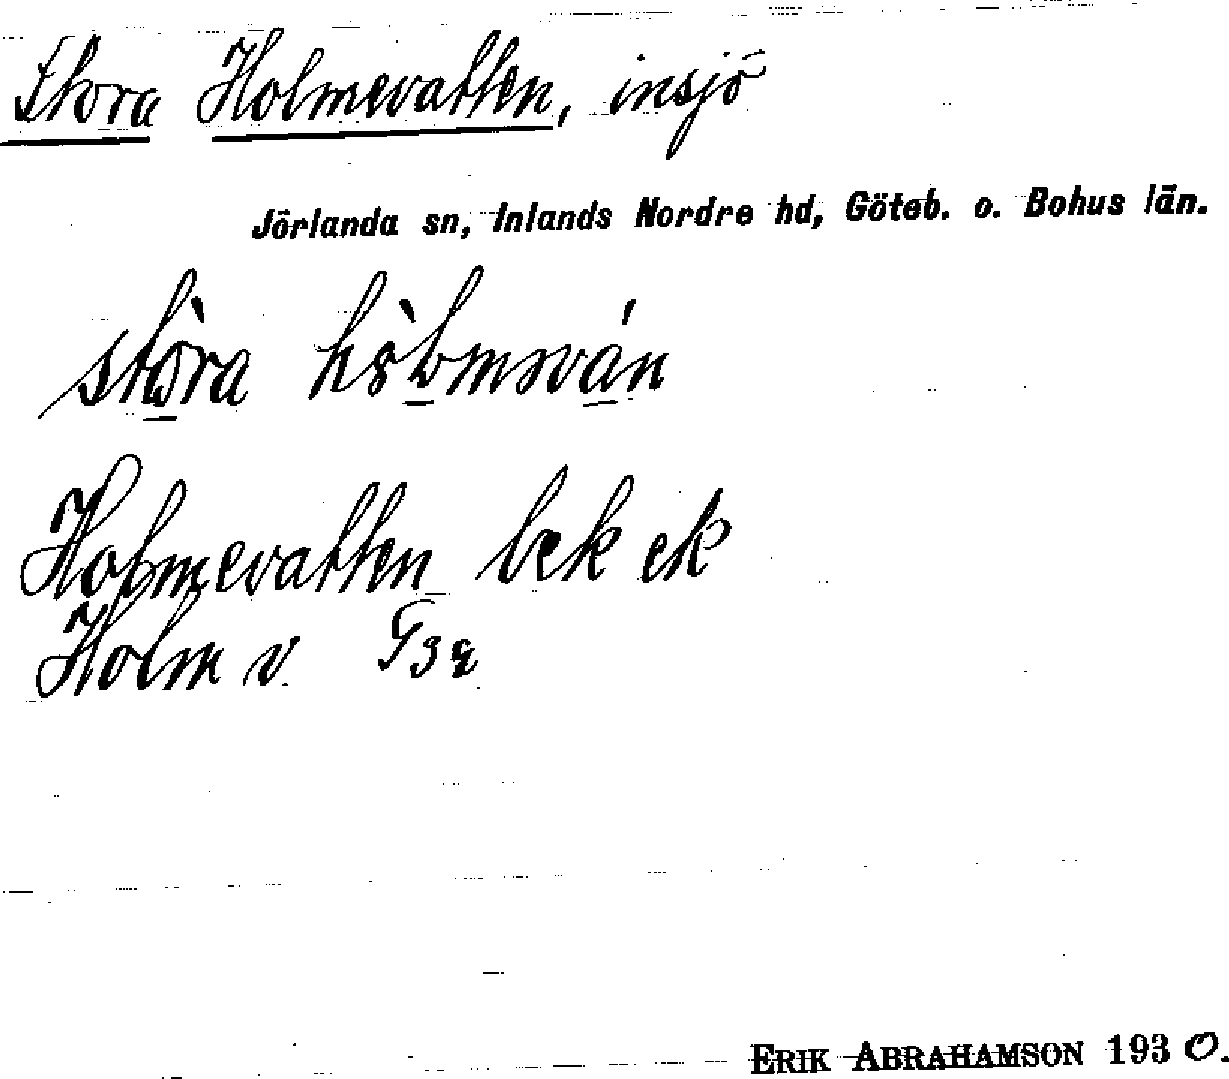 Stora Holmevatten, insjö
Jörlanda sn, Inlands Nordre hd, Göteb. o. Bohus län.
stòra
Holmevatten bek ek
Holm v.
ERIK ABRAHAMSON 1930.